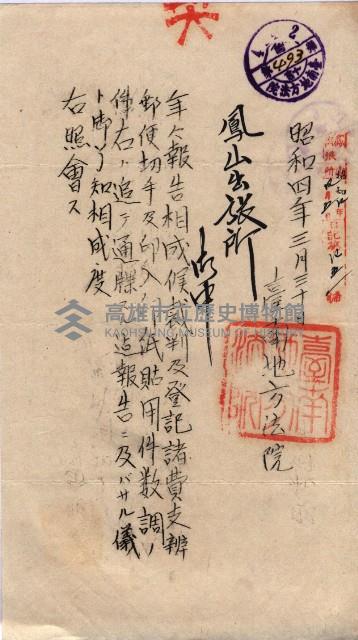 昭和四年三月三十
臺南地方法院
鳳山出張所
御中
年々報告相成候裁判及登記諸費支辨
郵便切手及印入紙貼用件数調ノ
件右ハ追テ通牒迄報告ニ及バザル儀
ト御了知相成度
右照會ス
高雄市立歷史博物館
KAOHSIUNG MUSEUM OF HISTORY
臺南地方法院
493